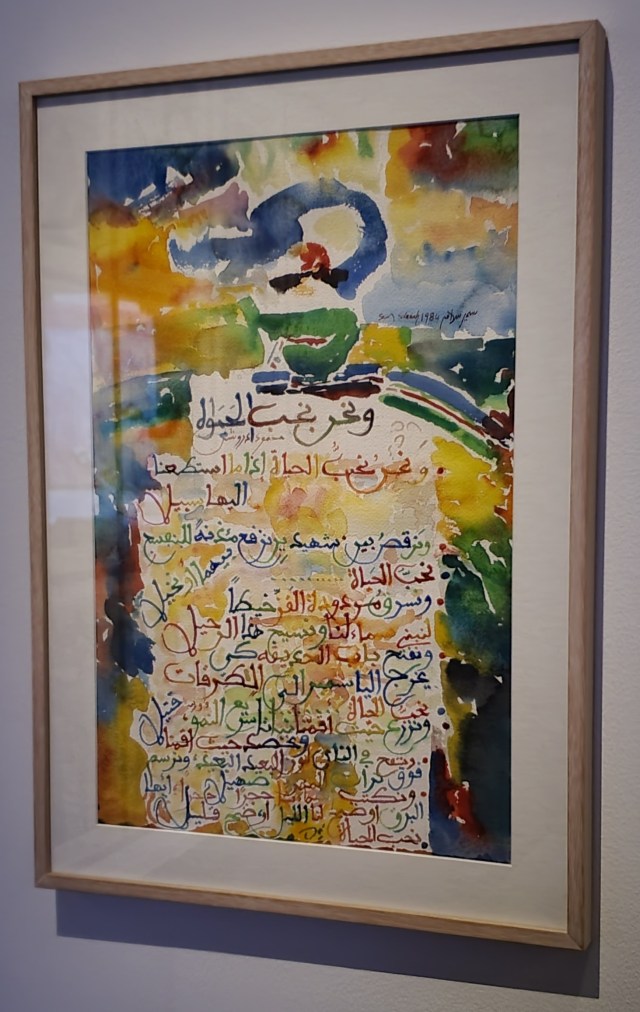 سمير سلامه 1984 Samir Salameh
ونحن نحب الحياة
محمود درويش
وَنحنُ نُحبُّ الحياة إذا ما استطعنا
إليها سبيلا
ونرقص بين شهيدين نرفع مئذنة للبنفسج
بينهما أو نخيلا
نحب الحياة
ونسرق من دودة القز خيطاً
لنبني سماء لنا ونسيج هذا الرحيلا
ونفتح باب الحديقة كي
يخرج الياسمين إلى الطرقات
نحب الحياة
ونزرع حيث أقمنا نباتا سريع النمو
ونحصد حيث أقمنا قتيلا
وننفخ في الناي لون البعيد البعيد ونرسم
فوق تراب الممر صهيلا
ونكتب أسماءنا حجرا أيها
البرق أوضح لنا الليل أوضح قليلا
نحب الحياة